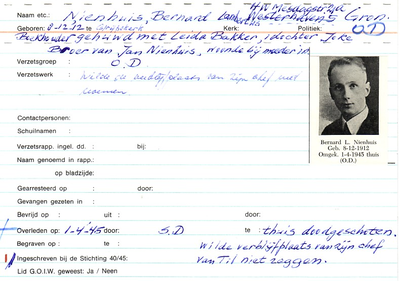 H.W. Mesdagstr.
Naam etc.: Nienhuis, Bernard Westerhaven 5 Gron.
Geboren: 8-12-12 te Kerk: Politiek: O.D
Boekhouder gehuwd met Leida Bakker, 1 dochter Joke
Broer van Jan Nienhuis, woonde bij moeder in
Verzetsgroep : O.D
Verzetswerk : Wilde de onderduikplaats van zijn chef niet
noemen.
Contactpersonen:
Schuilnamen :
Verzetsrapp. ingel. dd. : bij:
Naam genoemd in rapp.:
op bladzijde:
Gearresteerd op : door:
Gevangen gezeten in :
Bevrijd op : uit : door:
Overleden op : 1-4-'45 door: S.D te : thuis doodgeschoten.
Begraven op : te : wilde verblijfplaats van zijn chef
Ingeschreven bij de Stichting 40/45: van Til niet zeggen.
Lid G.O.I.W. geweest: Ja / Neen
Bernard L. Nienhuis
Geb. 8-12-1912
Omgek. 1-4-1945 thuis
(O.D.)